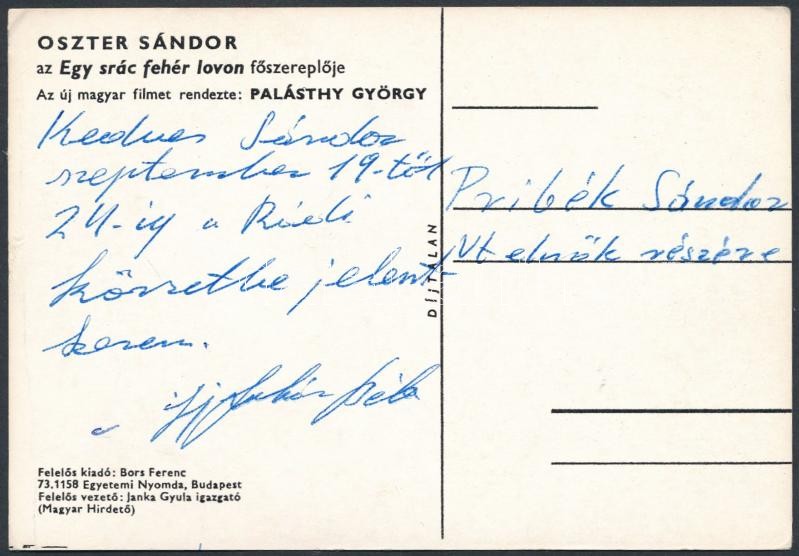 OSZTER SÁNDOR
az Egy srác fehér lovon főszereplője
Az új magyar filmet rendezte: PALÁSTHY GYÖRGY
Kedves Sándor
szeptember 19-től
24-ig a Rádi
körzetbe jelent-
kezem.
ifj Béla
Felelős kiadó: Bors Ferenc
73.1158 Egyetemi Nyomda, Budapest
Felelős vezető: Janka Gyula igazgató
(Magyar Hirdető)
DÍJTALAN
Pribék Sándor
Vt elnök részére